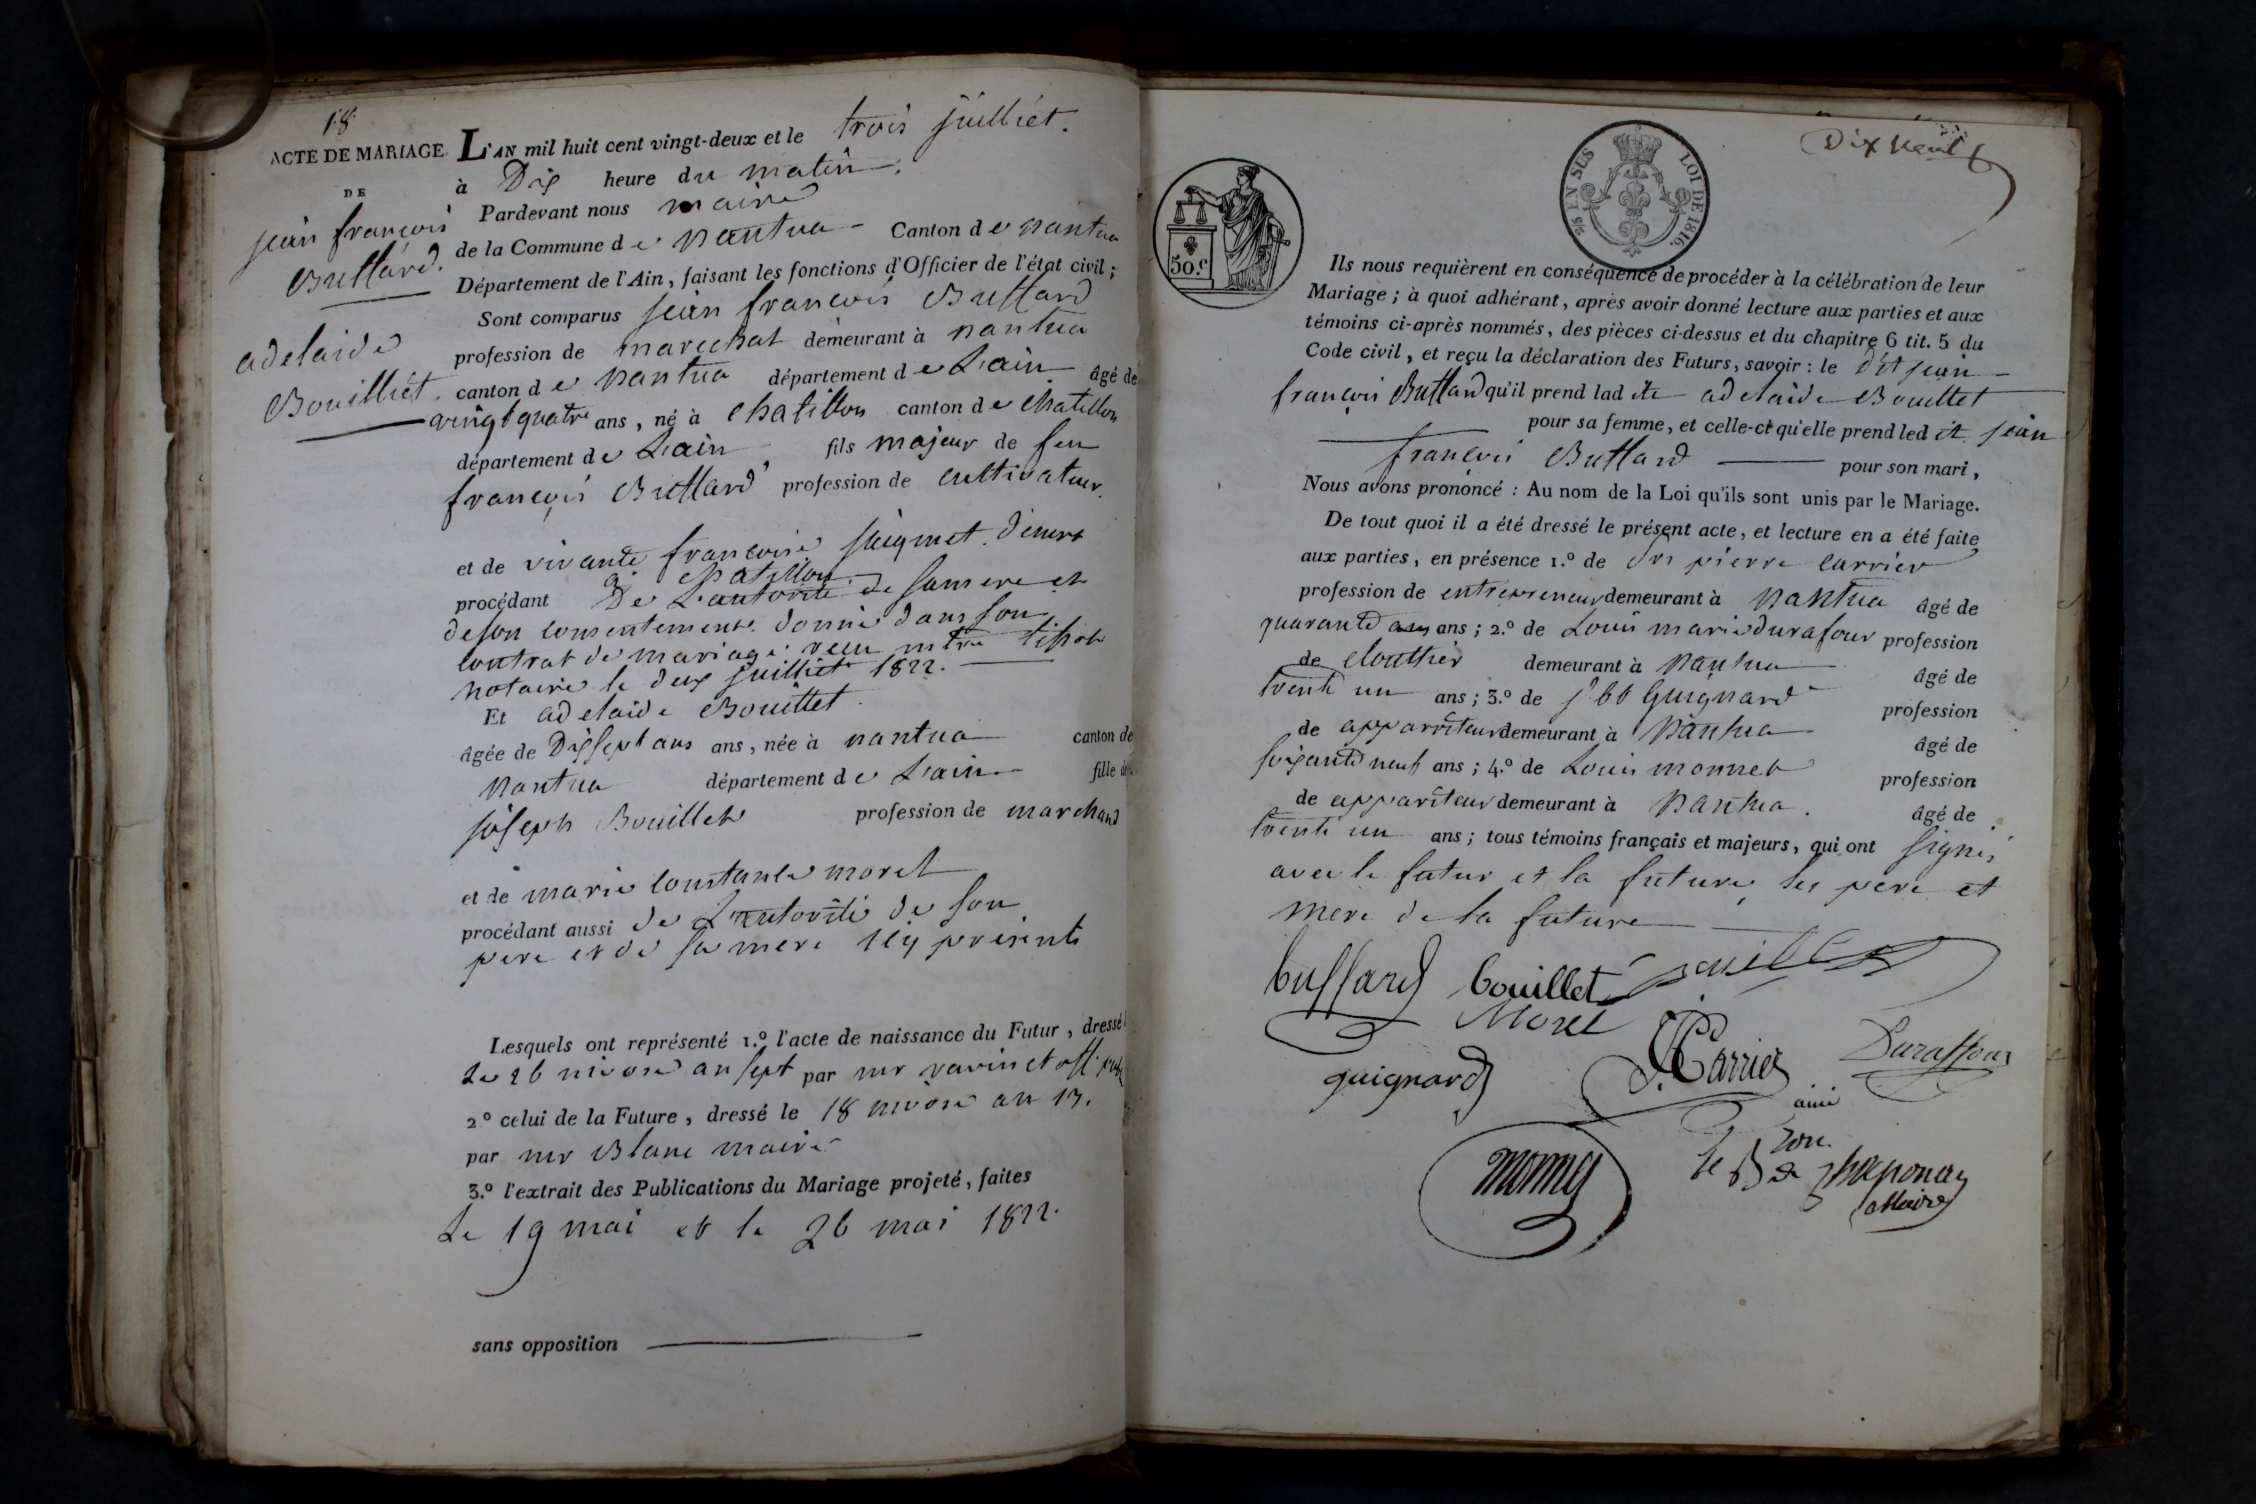 18
ACTE DE MARIAGE
DE
jean françois
Buffard.
adelaide
Bouilliet.
L'AN mil huit cent vingt-deux et le trois juilliet.
à Dix heure du matin.
Pardevant nous maire
de la Commune de nantua Canton de nantua
Département de l'Ain, faisant les fonctions d'Officier de l'état civil;
Sont comparus jean françois Buffard
profession de marechal demeurant à nantua
canton de nantua département de L'ain âgé de
vingt quatre ans, né à chatillon canton de chatillon
département de L'ain fils majeur de feu
françois Buffard profession de cultivateur.
et de vivante françoise demeurt
à chatillon.
procédant De L'autorité de sa mere et
de son consentement donné dans son
contrat de mariage recu mtre
notaire le deux juilliet 1822.
Et adelaide Bouillet.
âgée de Dix sept ans ans, née à nantua canton de
nantua département de L'ain fille de
joseph Bouillet profession de marchand
et de marie constance morel
procédant aussi de L'autorité de son
pere et de sa mere icy présents
Lesquels ont représenté 1.º l'acte de naissance du Futur, dressé
Le 26 nivose an sept par mr ravinet off. pub
2º celui de la Future, dressé le 18 nivose an 13.
par mr Blanc maire
3.º l'extrait des Publications du Mariage projeté, faites
Le 19 mai et le 26 mai 1822.
sans opposition
Dix neuf
50.c
EN SUS
LOI DE 1816.
Ils nous requièrent en conséquence de procéder à la célébration de leur
Mariage; à quoi adhérant, après avoir donné lecture aux parties et aux
témoins ci-après nommés, des pièces ci-dessus et du chapitre 6 tit. 5 du
Code civil, et reçu la déclaration des Futurs, savoir: le dit jean
françois Buffard qu'il prend lad ite adelaide Bouillet
pour sa femme, et celle-ci qu'elle prend led it jean
françois Buffard pour son mari,
Nous avons prononcé: Au nom de la Loi qu'ils sont unis par le Mariage.
De tout quoi il a été dressé le présent acte, et lecture en a été faite
aux parties, en présence 1.º de pierre carrier
profession de entrepreneur demeurant à nantua âgé de
quarante ans ans; 2.º de Louis marie durafour profession
de clouttier demeurant à nantua âgé de
trente un ans; 3.º de Guignard profession
de apparriteur demeurant à nantua âgé de
soixante neuf ans; 4.º de Louis monnet profession
de appariteur demeurant à nantua. âgé de
trente un ans; tous témoins français et majeurs, qui ont signés
avec le futur et la future, les pere et
mere de la future
buffard bouillet bouillet
Morel
guignard Carrier Duraffour
ainé
monnet
le Bon de chaponay
Maire